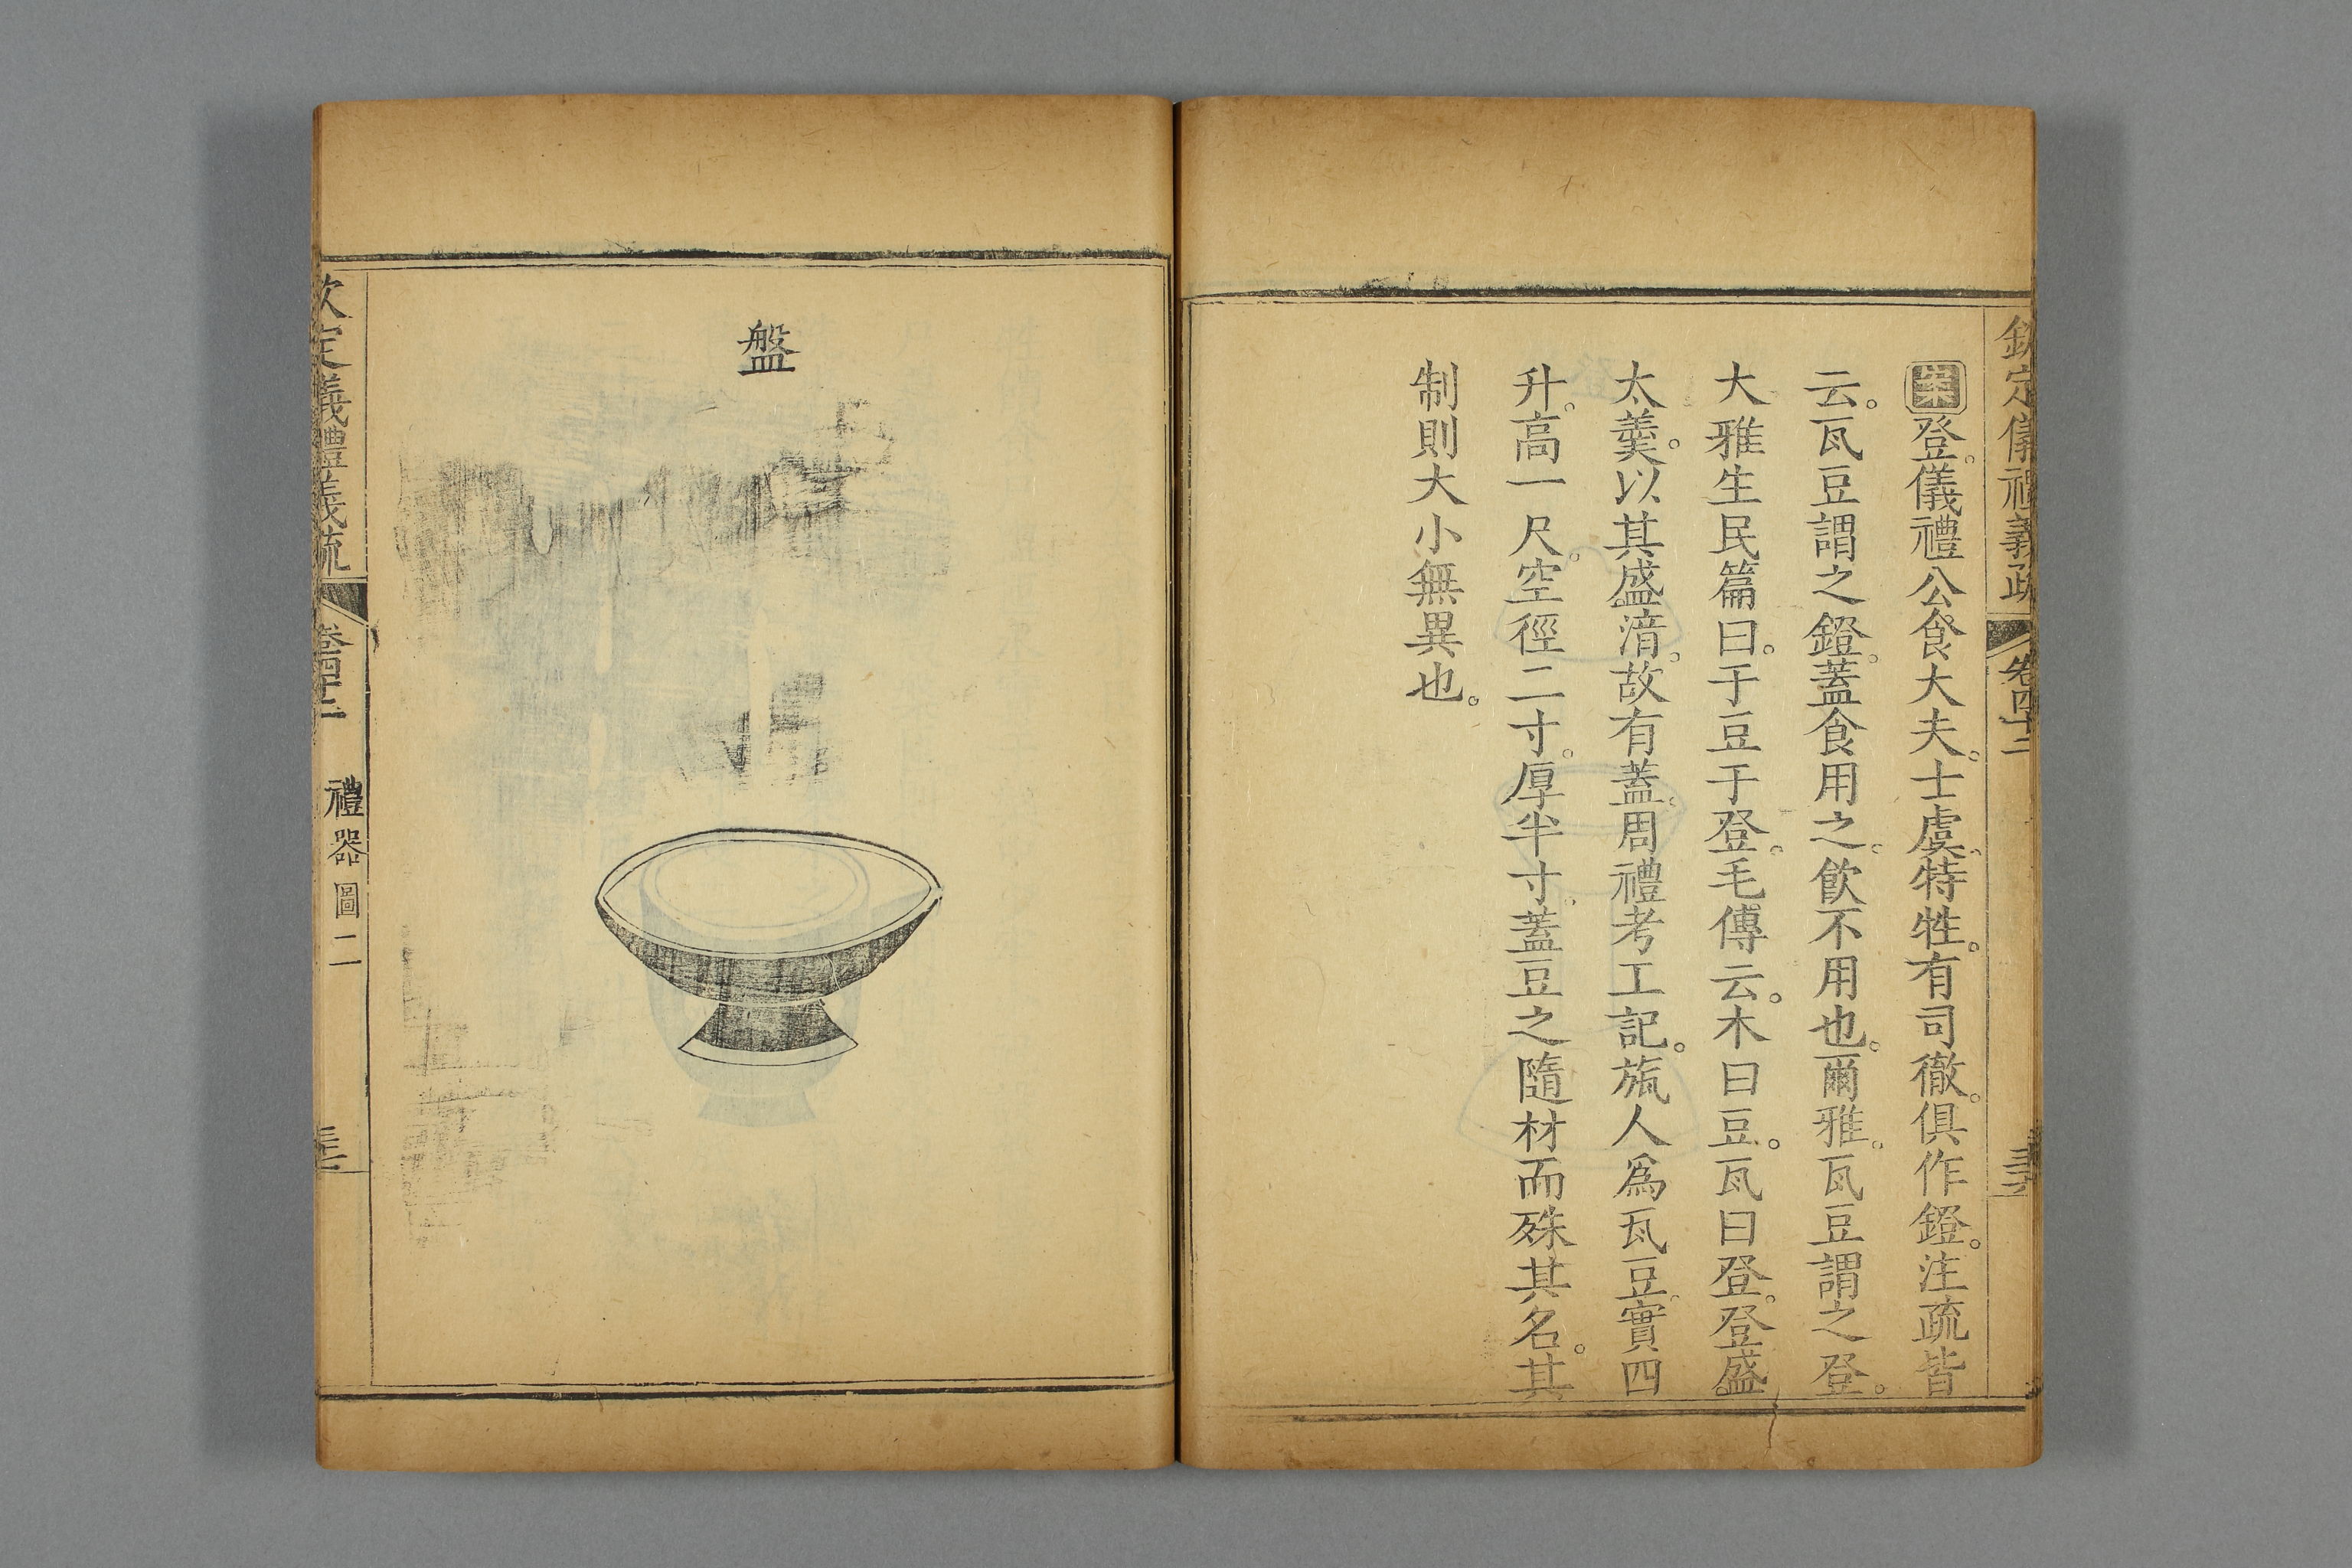 欽定儀禮義疏 卷四十二
案登儀禮公食大夫。士虞。特牲。有司徹。俱作鐙。注疏皆
云。瓦豆謂之鐙。蓋食用之。飲不用也。爾雅。瓦豆謂之登。
大雅生民篇曰。于豆于登。毛傳云。木曰豆。瓦曰登。登盛
太羹。以其盛湆。故有蓋。周禮考工記。旊人為瓦豆。實四
升。高一尺。空徑二寸。厚半寸。蓋豆之隨材而殊其名。其
制則大小無異也。
盤
欽定儀禮義疏 卷四十二 禮器圖二